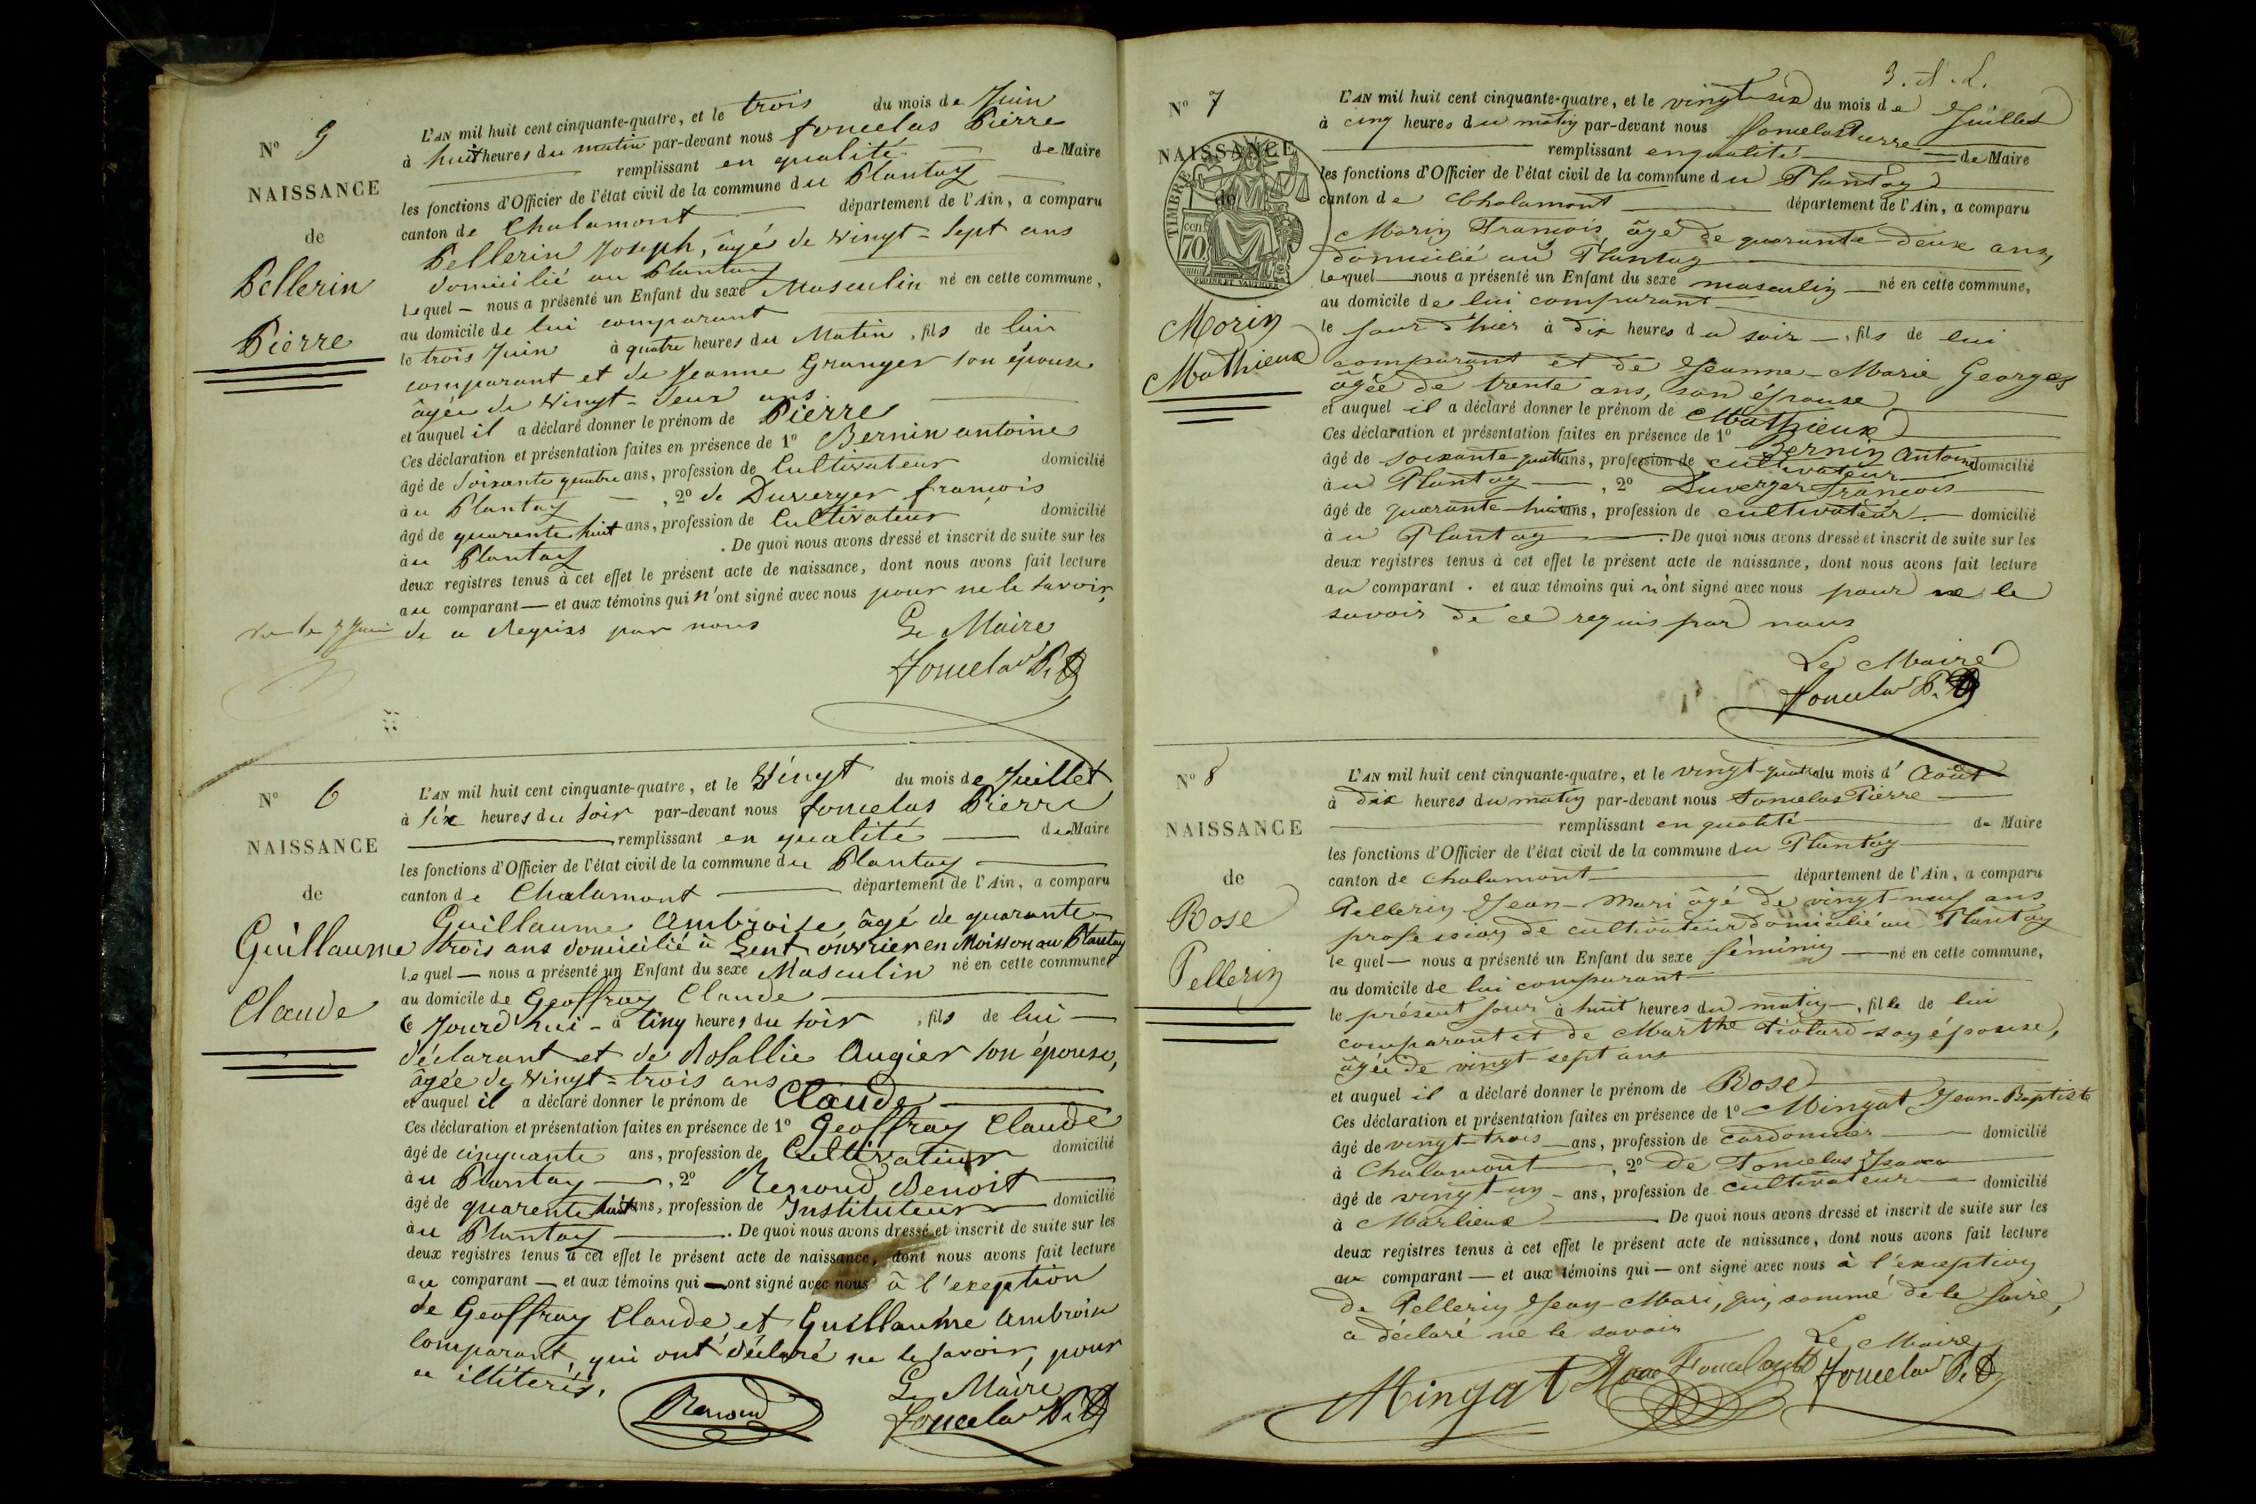 N° 5
NAISSANCE
de
Pellerin
Pierre
L'AN mil huit cent cinquante-quatre, et le trois du mois de Juin
à huit heures du matin par-devant nous Joncelas Pierre
remplissant en qualité de Maire
les fonctions d'Officier de l'état civil de la commune du Plantay
canton de Chalamont département de l'Ain, a comparu
Pellerin Joseph, âgé de vingt-sept ans
domicilié au Plantay
lequel — nous a présenté un Enfant du sexe Masculin né en cette commune,
au domicile de lui comparant
le trois Juin à quatre heures du Matin, fils de lui
comparant et de Jeanne Granger son épouse
âgée de vingt-deux ans
et auquel il a déclaré donner le prénom de Pierre
Ces déclaration et présentation faites en présence de 1° Bernin antoine
âgé de soixante quatre ans, profession de Cultivateur domicilié
au Plantay —, 2° de Duverger françois
âgé de quarente huit ans, profession de Cultivateur domicilié
au Plantay . De quoi nous avons dressé et inscrit de suite sur les
deux registres tenus à cet effet le présent acte de naissance, dont nous avons fait lecture
au comparant — et aux témoins qui n'ont signé avec nous pour ne le savoir,
de ce Requiss par nous
Le Maire
N° 6
NAISSANCE
de
Guillaume
Claude
L'AN mil huit cent cinquante-quatre, et le Vingt du mois de Juillet
à six heures du soir par-devant nous Joncelas Pierre
remplissant en qualité — de Maire
les fonctions d'Officier de l'état civil de la commune du Plantay
canton de Chalamont département de l'Ain, a comparu
Guillaume Ambroise âgé de quarante-
trois ans domicilié à Gent, ouvrier en Moisson au Plantay
lequel — nous a présenté un Enfant du sexe Masculin né en cette commune
au domicile de Geoffray Claude
le Jourd'hui - à cinq heures du soir, fils de lui —
déclarant et de Rosallie Augier son épouse,
âgée de vingt-trois ans
et auquel il a déclaré donner le prénom de Claude
Ces déclaration et présentation faites en présence de 1° Geoffray Claude
âgé de cinquante ans, profession de Cultivateur domicilié
au Plantay —, 2° Renoud Benoit
âgé de quarente huit ans, profession de Instituteur domicilié
au Plantay . De quoi nous avons dressé et inscrit de suite sur les
deux registres tenus à cet effet le présent acte de naissance, dont nous avons fait lecture
au comparant — et aux témoins qui — ont signé avec nous à l'exeption
de Geoffray Claude et Guillaume Ambroise
comparant, qui ont déclaré ne le savoir, pour
ce illiterés.
Le Maire
Renoud
3. A. L.
N° 7
NAISSANCE
de
TIMBRE
70
Morin
Mathieux
L'AN mil huit cent cinquante-quatre, et le vingt-six du mois de Juillet
à cinq heures du matin par-devant nous Joncelas Pierre
remplissant en qualité — de Maire
les fonctions d'Officier de l'état civil de la commune du Plantay
canton de Chalamont département de l'Ain, a comparu
Morin François âgé de quarante-deux ans,
domicilié au Plantay
lequel — nous a présenté un Enfant du sexe masculin — né en cette commune,
au domicile de lui comparant
le jour d'hier à dix heures du soir —, fils de lui
comparant et de Jeanne-Marie Georges
âgée de trente ans, son épouse
et auquel il a déclaré donner le prénom de Mathieux
Ces déclaration et présentation faites en présence de 1° Bernin Antoine
âgé de soixante-quatre ans, profession de cultivateur domicilié
au Plantay —, 2° Duverger François
âgé de quarante-huit ans, profession de cultivateur — domicilié
au Plantay . De quoi nous avons dressé et inscrit de suite sur les
deux registres tenus à cet effet le présent acte de naissance, dont nous avons fait lecture
au comparant . et aux témoins qui n'ont signé avec nous pour ne le
savoir de ce requis par nous
Le Maire
N° 8
NAISSANCE
de
Rose
Pellerin
L'AN mil huit cent cinquante-quatre, et le vingt-quatre du mois d'Août
à dix heures du matin par-devant nous Joncelas Pierre
remplissant en qualité de Maire
les fonctions d'Officier de l'état civil de la commune du Plantay
canton de Chalamont département de l'Ain, a comparu
Pellerin Jean-Mari âgé de vingt-neuf ans
profession de cultivateur domicilié au Plantay
lequel — nous a présenté un Enfant du sexe féminin — né en cette commune,
au domicile de lui comparant
le présent jour à huit heures du matin —, fille de lui
comparant et de Marthe son épouse,
âgée de vingt-sept ans
et auquel il a déclaré donner le prénom de Rose
Ces déclaration et présentation faites en présence de 1° Mingat Jean-Baptiste
âgé de vingt-trois — ans, profession de cordonnier — domicilié
à Chalamont —, 2° de Joncelas Isaac
âgé de vingt-un - ans, profession de cultivateur — domicilié
à Marlieux . De quoi nous avons dressé et inscrit de suite sur les
deux registres tenus à cet effet le présent acte de naissance, dont nous avons fait lecture
au comparant — et aux témoins qui — ont signé avec nous à l'exception
de Pellerin Jean-Mari, qui, sommé de le faire,
a déclaré ne le savoir
Le Maire
Mingat